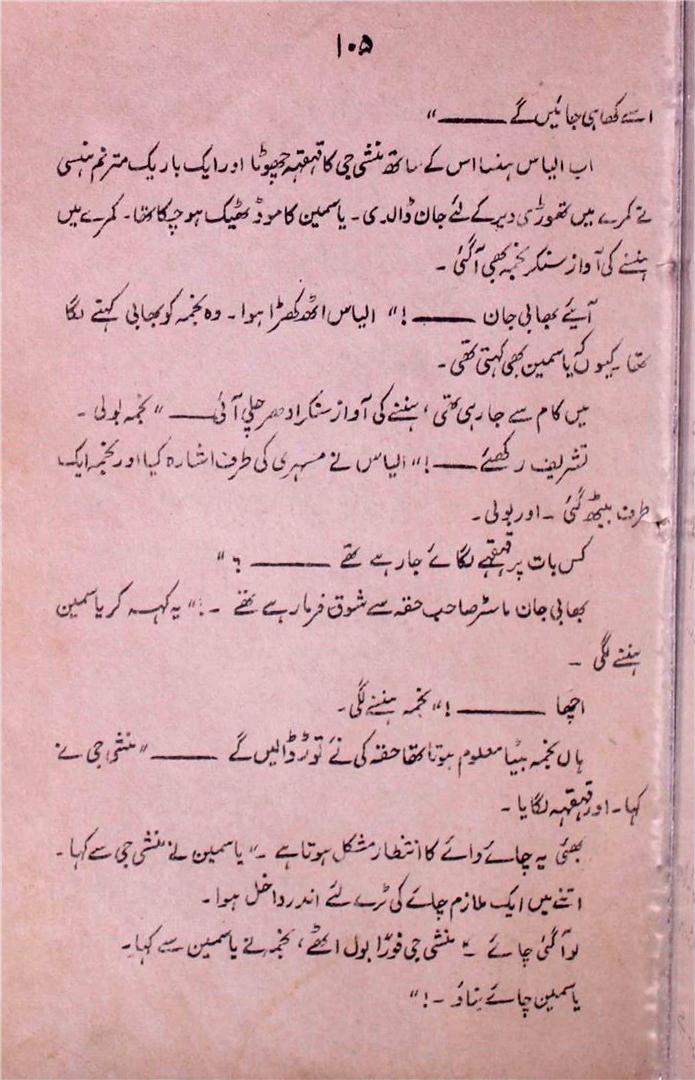 ۱۰۵
اسے کھا ہی جائیں گے ــــــــ "
اب الیاس ہنسا اس کے ساتھ منشی جی کا قہقہہ چھوٹا اور ایک باریک مترنم ہنسی
نے کمرے میں تھوڑی دیر کے لئے جان ڈالدی۔ یاسمین کا موڈ ٹھیک ہو چکا تھا۔ کمرے میں
ہنسنے کی آواز سنکر نجمہ بھی آ گئی ۔
آیئے بھابی جان ــــــــ ! " الیاس اٹھ کھڑا ہوا۔ وہ نجمہ کو بھابی کہنے لگا
تھا کیوں کہ یاسمین بھی کہتی تھی۔
میں کام سے جا رہی تھی، ہنسنے کی آواز سنکر ادھر چلی آئی ــــــــ " نجمہ بولی۔
تشریف رکھئے ــــــــ ! " الیاس نے مسہری کی طرف اشارہ کیا اور نجمہ ایک
طرف بیٹھ گئی ۔ اور بولی۔
کس بات پر قہقہے لگائے جا رہے تھے ــــــــ ؟ "
بھابی جان ماسٹر صاحب حقہ سے شوق فرما رہے تھے ۔ ! " یہ کہہ کر یاسمین
ہنسنے لگی ۔
اچھا ــــــــ ! " نجمہ ہنسنے لگی۔
ہاں نجمہ بیٹیا معلوم ہوتا تھا حقہ کی نَے توڑ ڈالیں گے ــــــــ " منشی جی نے
کہا۔ اور قہقہہ لگایا۔
بھئی یہ چائے وائے کا انتظار مشکل ہوتا ہے ۔ " یاسمین نے منشی جی سے کہا۔
اتنے میں ایک ملازم چائے کی ٹرے لئے اندر داخل ہوا۔
لو آ گئی چائے ۔ " منشی جی فوراً بول اٹھے، نجمہ نے یاسمین سے کہا۔
یاسمین چائے بناؤ ۔ ! "